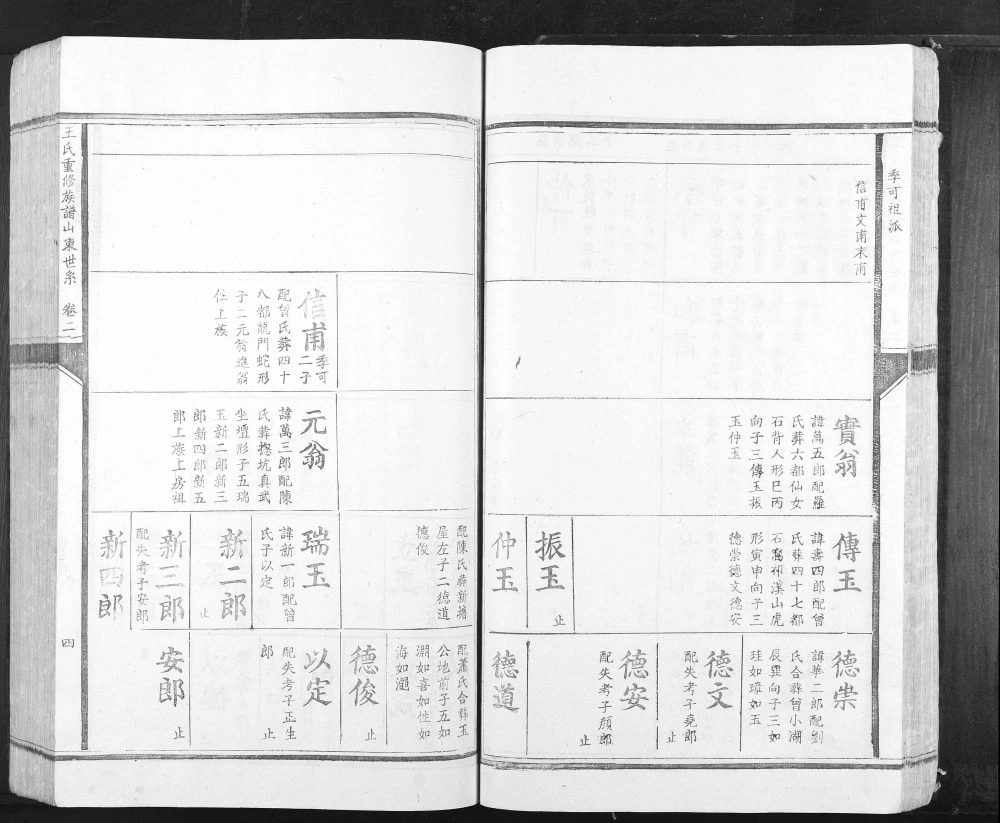 季可祖派
信甫文甫末甫
實翁
諱萬五郎配羅
氏葬六都仙女
石背人形巳丙
向子三傳玉振
玉仲玉
傳玉
諱壽四郎配曾
氏葬四十七都
石窩祁溪山虎
形寅申向子三
德崇德文德安
振玉
止
仲玉
配陳氏葬新塘
屋左子二德道
德俊
德崇
諱華二郎配劉
氏合葬曾小湖
辰巽向子三如
珪如璋如玉
德文
配失考子堯郎
止
德安
配失考子顏郎
止
德道
配蕭氏合葬玉
公地前子五如
淵如喜如性如
海如
德俊
止
信甫
季可
二子
配曾氏葬四十
八都龍門蛇形
子二元翁進翁
仕上族
元翁
諱萬三郎配陳
氏葬摠坑真武
坐壇形子五瑞
玉新二郎新三
郎新四郎新五
郎上族上房祖
瑞玉
諱新一郎配曾
氏子以定
新二郎
止
新三郎
配失考子安郎
新四郎
以定
配失考子正生
郎
止
安郎
止
王氏重修族譜山東世系 卷二
四